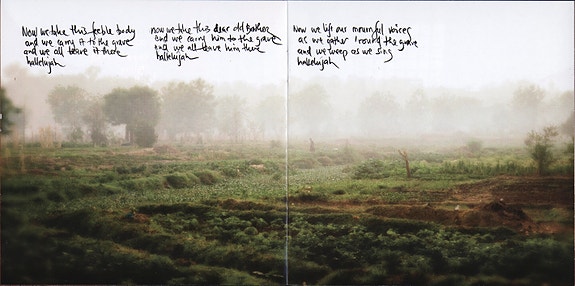 Now we take this feeble body
and we carry it to the grave
and we all leave it there
hallelujah
now we take this dear old Father
and we carry him to the grave
and we all leave him there
hallelujah
Now we lift our mournful voices
as we gather 'round the grave
and we weep as we sing
hallelujah